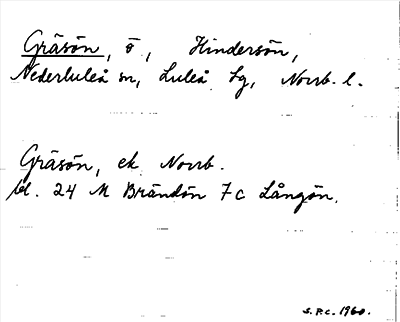 Gräsön, ö, Hindersön,
Nederluleå sn, Luleå lg, Norrb. l.
Gräsön, ek Norrb.
bl. 24 M Brändön 7 c Långön.
S.P.C. 1960.